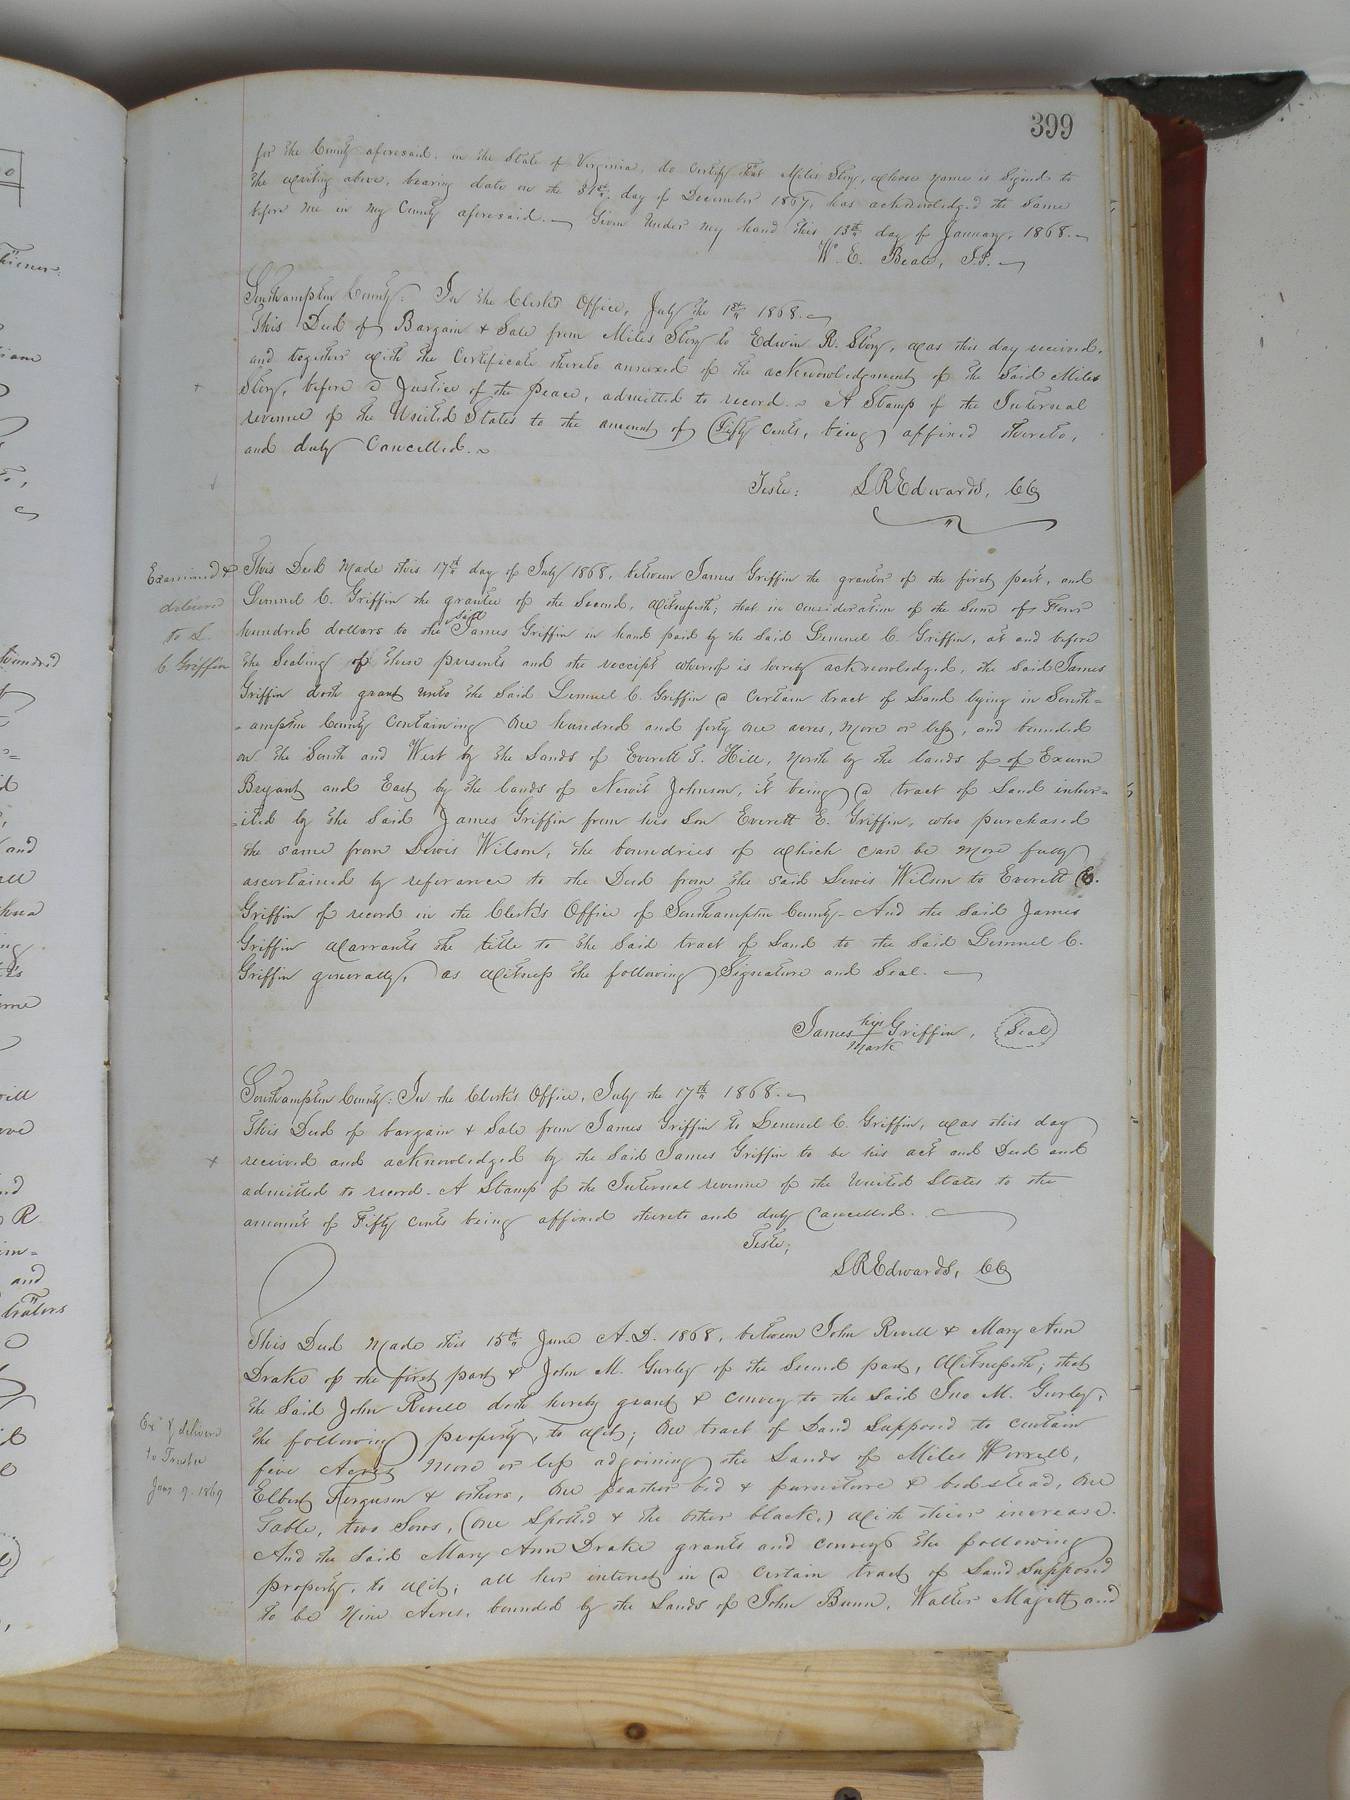 399
for the County aforesaid, in the State of Virginia, do certify that Miles Story, whose name is signed to
the writing above, bearing date on the 31st day of December 1867, has acknowledged the same
before me in my County aforesaid. Given under my hand this 13th day of January, 1868.
Wm. E. Beale, J.P.
Southampton County: In the Clerk's Office, July the 1st 1868.
This Deed of Bargain & Sale from Miles Story to Edwin R. Story, was this day received,
and together with the Certificate thereto annexed of the acknowledgment of the said Miles
Story, before a Justice of the Peace, admitted to record. A Stamp of the Internal
revenue of the United States to the amount of Fifty cents, being affixed thereto,
and duly Cancelled.
Teste: LREdwards, CC
Examined &
delivered
to L.
C. Griffin
This Deed made this 17th day of July 1868, between James Griffin the grantor of the first part, and
Lemuel C. Griffin the grantee of the Second, Witnesseth; that in consideration of the Sum of Four
hundred dollars to the said James Griffin in hand paid by the Said Lemuel C. Griffin, at and before
the Sealing of these presents and the receipt whereof is hereby acknowledged, the said James
Griffin doth grant unto the Said Lemuel C. Griffin a Certain tract of Land lying in South=
=ampton County Containing One hundred and forty one acres, more or less, and bounded
on the South and West by the Lands of Everett T. Hill, North by the lands of of Exum
Bryant and East by the lands of Newit Johnson, it being a tract of Land inher=
=ited by the Said James Griffin from his Son Everett E. Griffin, who purchased
the same from Lewis Wilson, the boundries of which can be more fully
ascertained by referance to the Deed from the said Lewis Wilson to Everett E.
Griffin of record in the Clerk's Office of Southampton County. And the Said James
Griffin Warrants the title to the Said tract of Land to the Said Lemuel C.
Griffin generally, as Witness the following Signature and Seal.
James his Griffin, Seal
mark
Southampton County: In the Clerk's Office, July the 17th 1868.
This Deed of bargain & Sale from James Griffin to Lemuel C. Griffin, was this day
received and acknowledged by the Said James Griffin to be his act and Deed and
admitted to record. A Stamp of the Internal revenue of the United States to the
amount of Fifty cents being affixed thereto and duly Cancelled.
Teste;
LREdwards, CC
This Deed made this 15th June A.D. 1868, between John Revell & Mary Ann
Drake of the first part & John M. Gurley of the Second part, Witnesseth; that
the Said John Revell doth hereby grant & convey to the Said Jno M. Gurley,
the following property, to wit; One tract of Land Supposed to contain
five Acres more or less adjoining the Lands of Miles Worrell,
Elbert Ferguson & others, One feather bed & furniture & bedstead, One
Table, two Sows, (One Spotted & the other black,) with their increase.
And the Said Mary Ann Drake grants and conveys the following
property, to wit; all her interest in a certain tract of Land Supposed
to be Nine Acres, bounded by the Lands of John Bunn, Walter Majett and
Exd & delivered
to Trustee
Jany 9. 1869